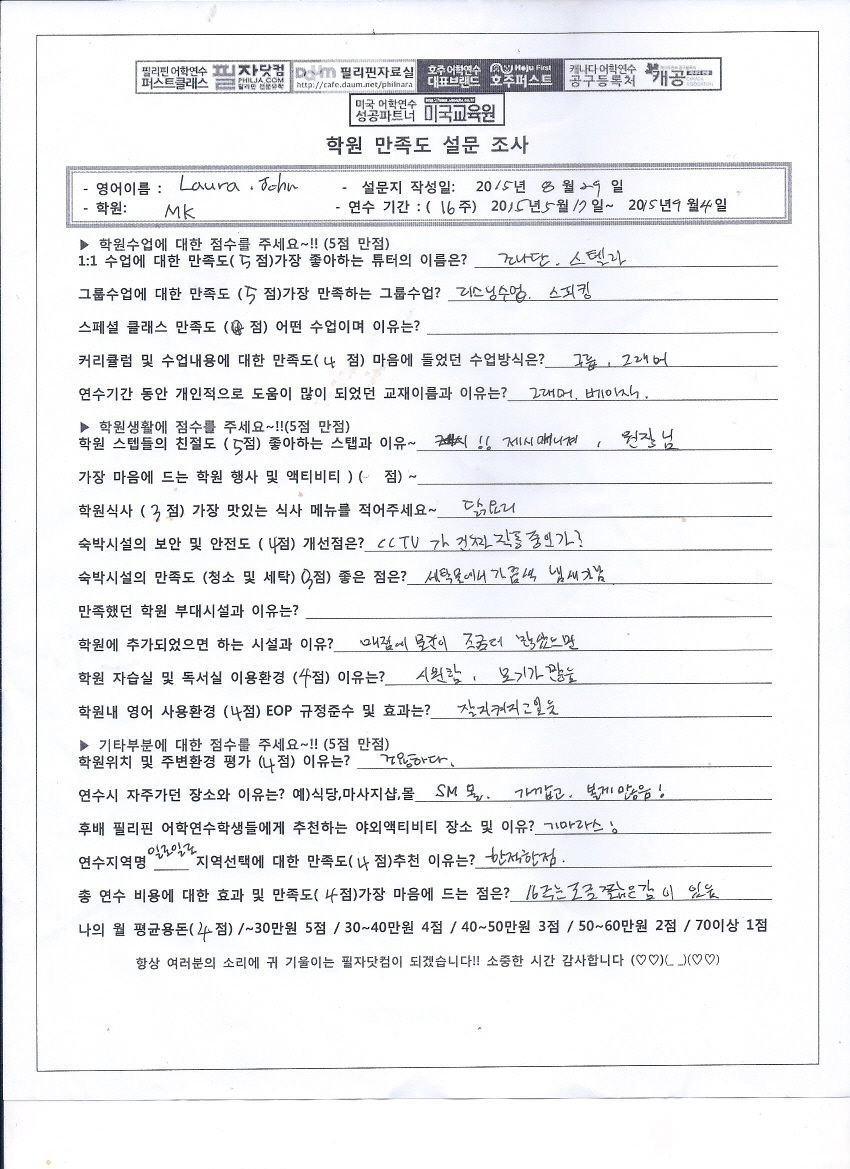 필리핀 어학연수 퍼스트클래스 필자닷컴 PHILJA.COM 필리핀 전문유학 Daum 필리핀자료실 http://cafe.daum.net/philnara 호주 어학연수 대표브랜드 Hoju First 호주퍼스트 캐나다 어학연수 공구등록처 캐공
미국 어학연수 성공파트너 미국교육원
학원 만족도 설문 조사
- 영어이름 : Laura . John - 설문지 작성일: 2015년 8월 29일
- 학원: MK - 연수 기간 : ( 16주) 2015년5월17일~ 2015년9월4일
▶ 학원수업에 대한 점수를 주세요~!! (5점 만점)
1:1 수업에 대한 만족도(5점)가장 좋아하는 튜터의 이름은? 조나단. 스텔라
그룹수업에 대한 만족도 (5점)가장 만족하는 그룹수업? 리스닝수업. 스피킹
스페셜 클래스 만족도 ( 점) 어떤 수업이며 이유는?
커리큘럼 및 수업내용에 대한 만족도(4 점) 마음에 들었던 수업방식은? 그룹, 그래머
연수기간 동안 개인적으로 도움이 많이 되었던 교재이름과 이유는? 그래머, 베이직.
▶ 학원생활에 점수를 주세요~!!(5점 만점)
학원 스텝들의 친절도 (5점) 좋아하는 스탭과 이유~ !! 제시매니져 , 원장님
가장 마음에 드는 학원 행사 및 액티비티 ) (- 점) ~
학원식사 ( 3점) 가장 맛있는 식사 메뉴를 적어주세요~ 닭요리
숙박시설의 보안 및 안전도 ( 4점) 개선점은? CCTV 가 진짜 작동중인가?
숙박시설의 만족도 (청소 및 세탁) (3점) 좋은 점은? 세탁물에서 가끔씩 냄새남
만족했던 학원 부대시설과 이유는?
학원에 추가되었으면 하는 시설과 이유? 매점에 물건이 조금더 많았으면
학원 자습실 및 독서실 이용환경 (4점) 이유는? 시원함, 모기가 많음
학원내 영어 사용환경 (4점) EOP 규정준수 및 효과는? 잘지켜지고있음
▶ 기타부분에 대한 점수를 주세요~!! (5점 만점)
학원위치 및 주변환경 평가 (4점) 이유는? 조용하다.
연수시 자주가던 장소와 이유는? 예)식당,마사지샵,몰 SM 몰. 가깝고. 볼게많음!
후배 필리핀 어학연수학생들에게 추천하는 야외액티비티 장소 및 이유? 기마라스!
연수지역명 일로일로 지역선택에 대한 만족도(4 점)추천 이유는? 한적한점.
총 연수 비용에 대한 효과 및 만족도( 4점)가장 마음에 드는 점은? 16주는 조금 짧은감이 있음
나의 월 평균용돈(4점) /~30만원 5점 / 30~40만원 4점 / 40~50만원 3점 / 50~60만원 2점 / 70이상 1점
항상 여러분의 소리에 귀 기울이는 필자닷컴이 되겠습니다!! 소중한 시간 감사합니다 (♡♡)(_ _)(♡♡)